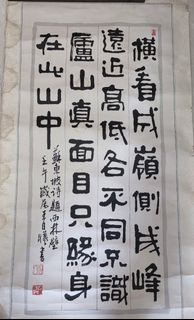 橫看成嶺側成峰
遠近高低各不同不識
廬山真面目只緣身
在此山中
蘇東坡詩題西林壁
壬午歲尾書